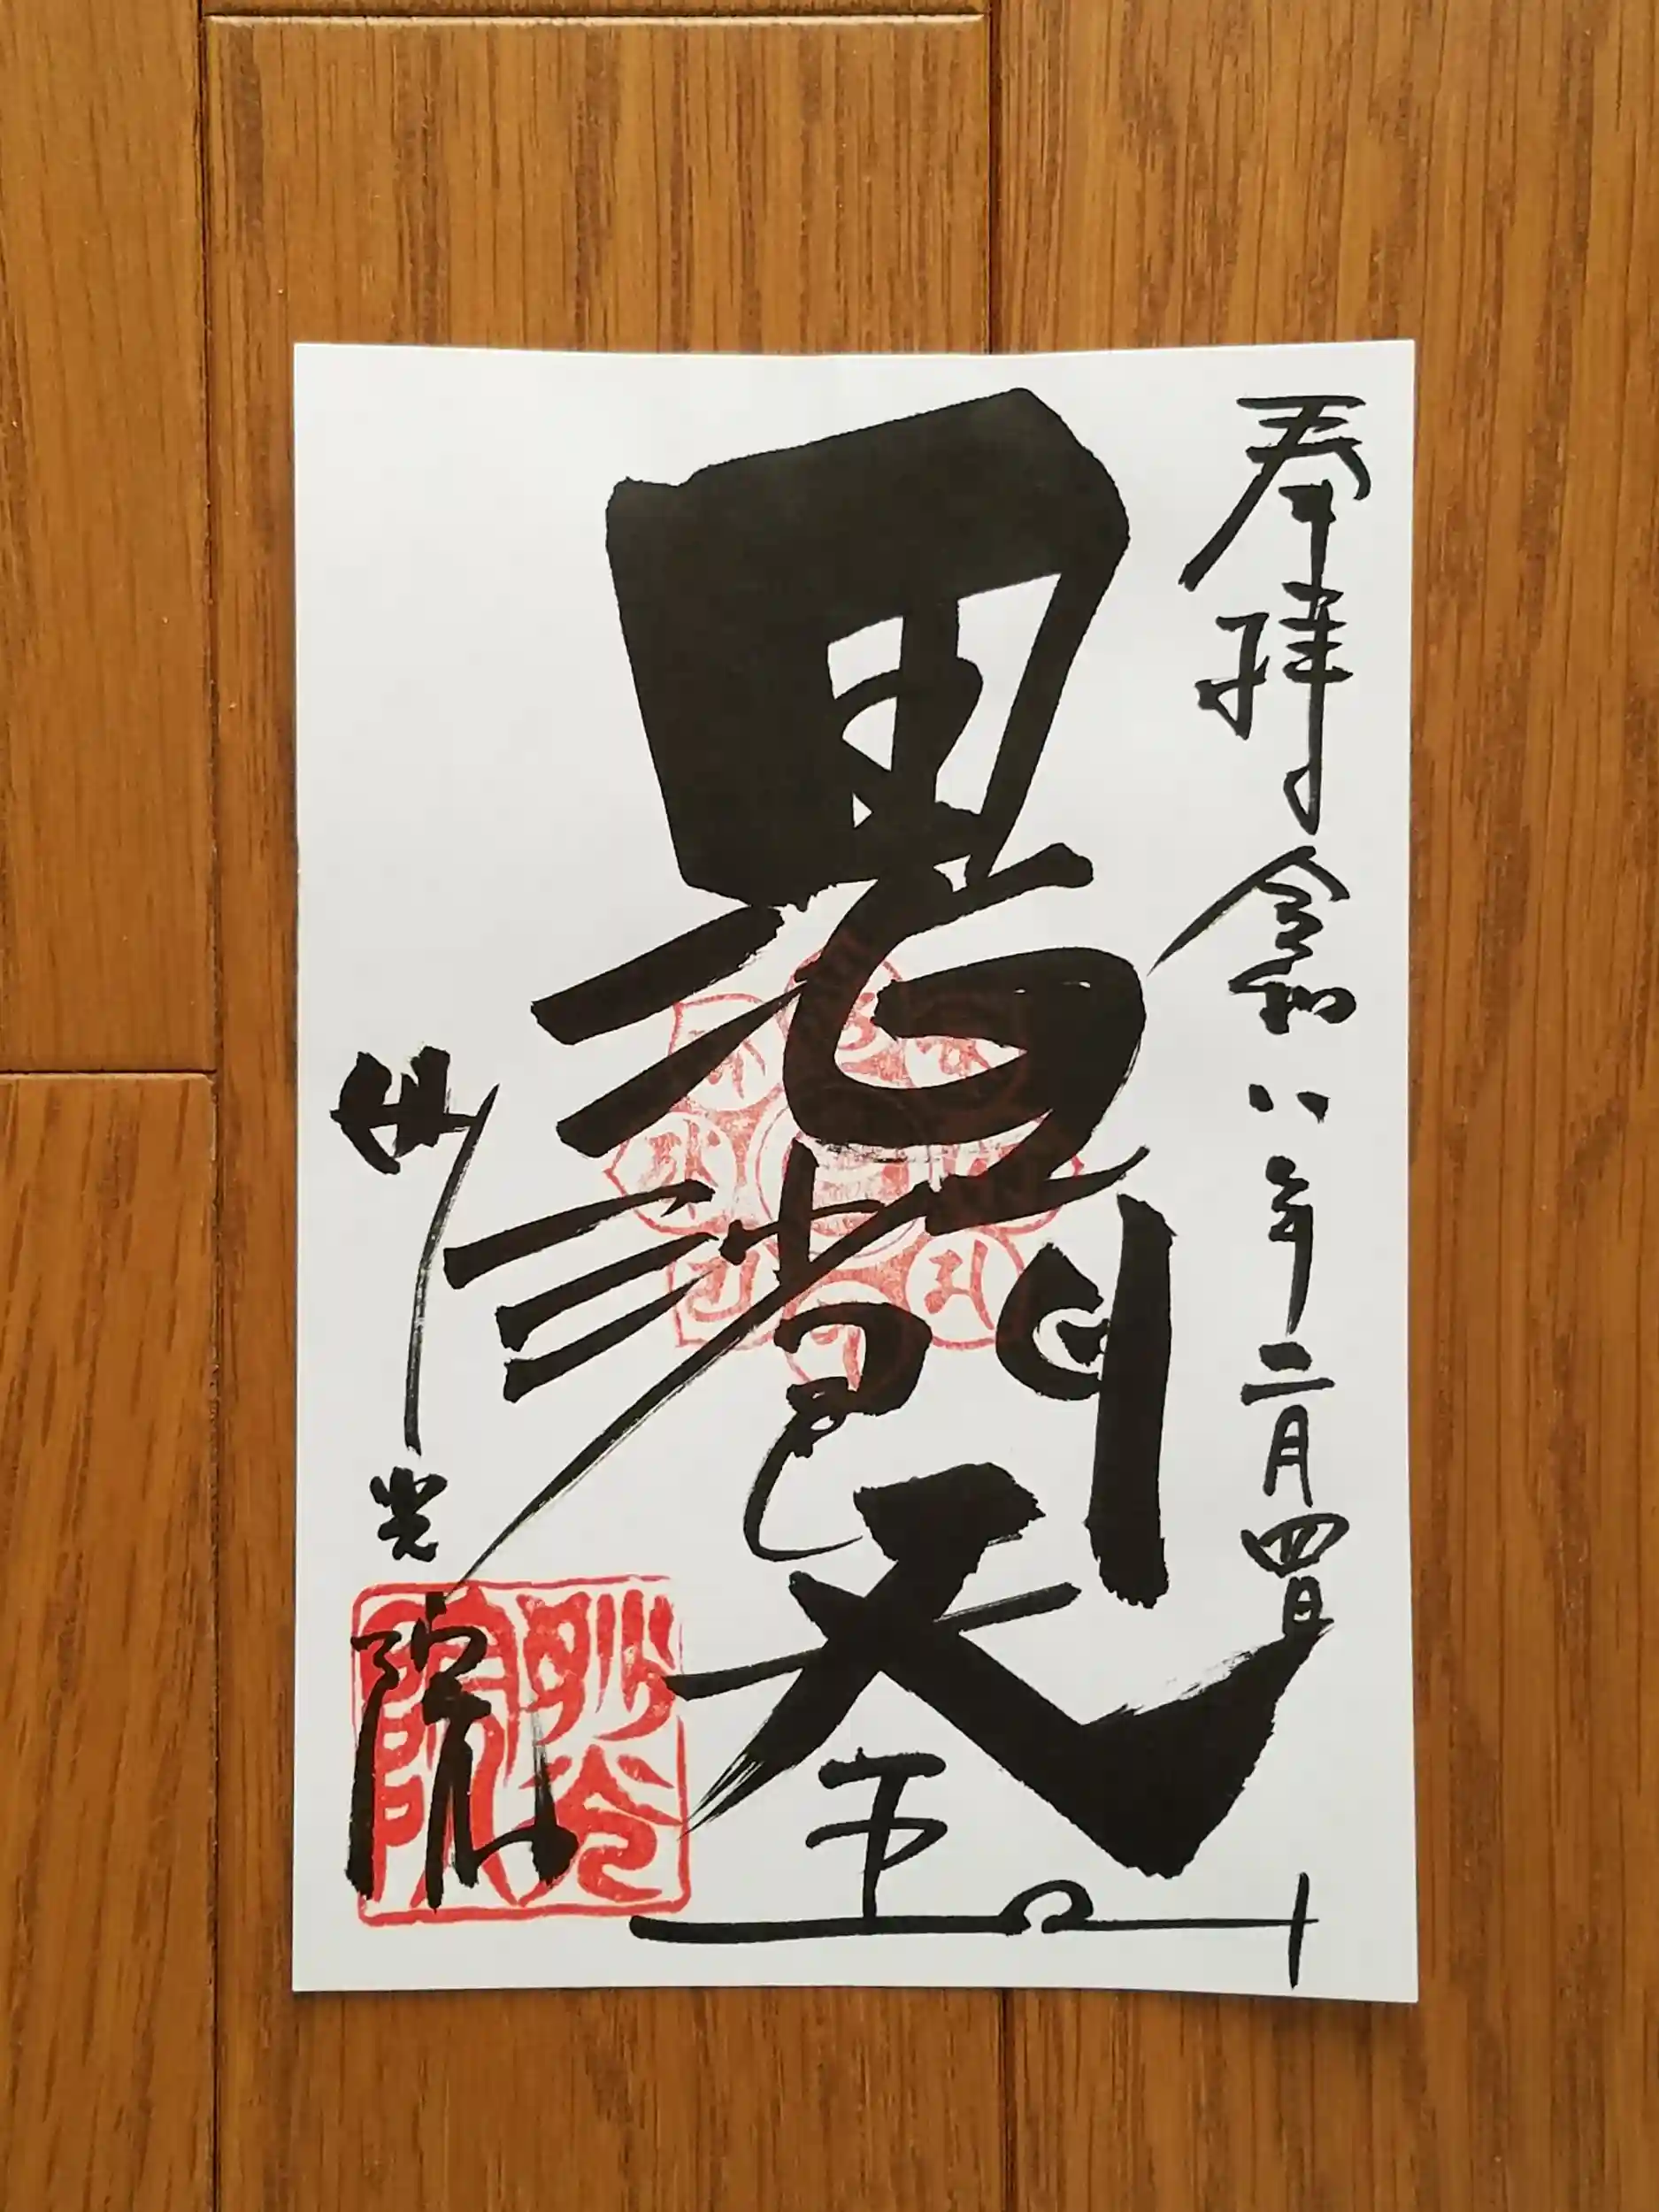 奉拝 令和八年二月四日
毘沙門天王
妙光院
妙光院